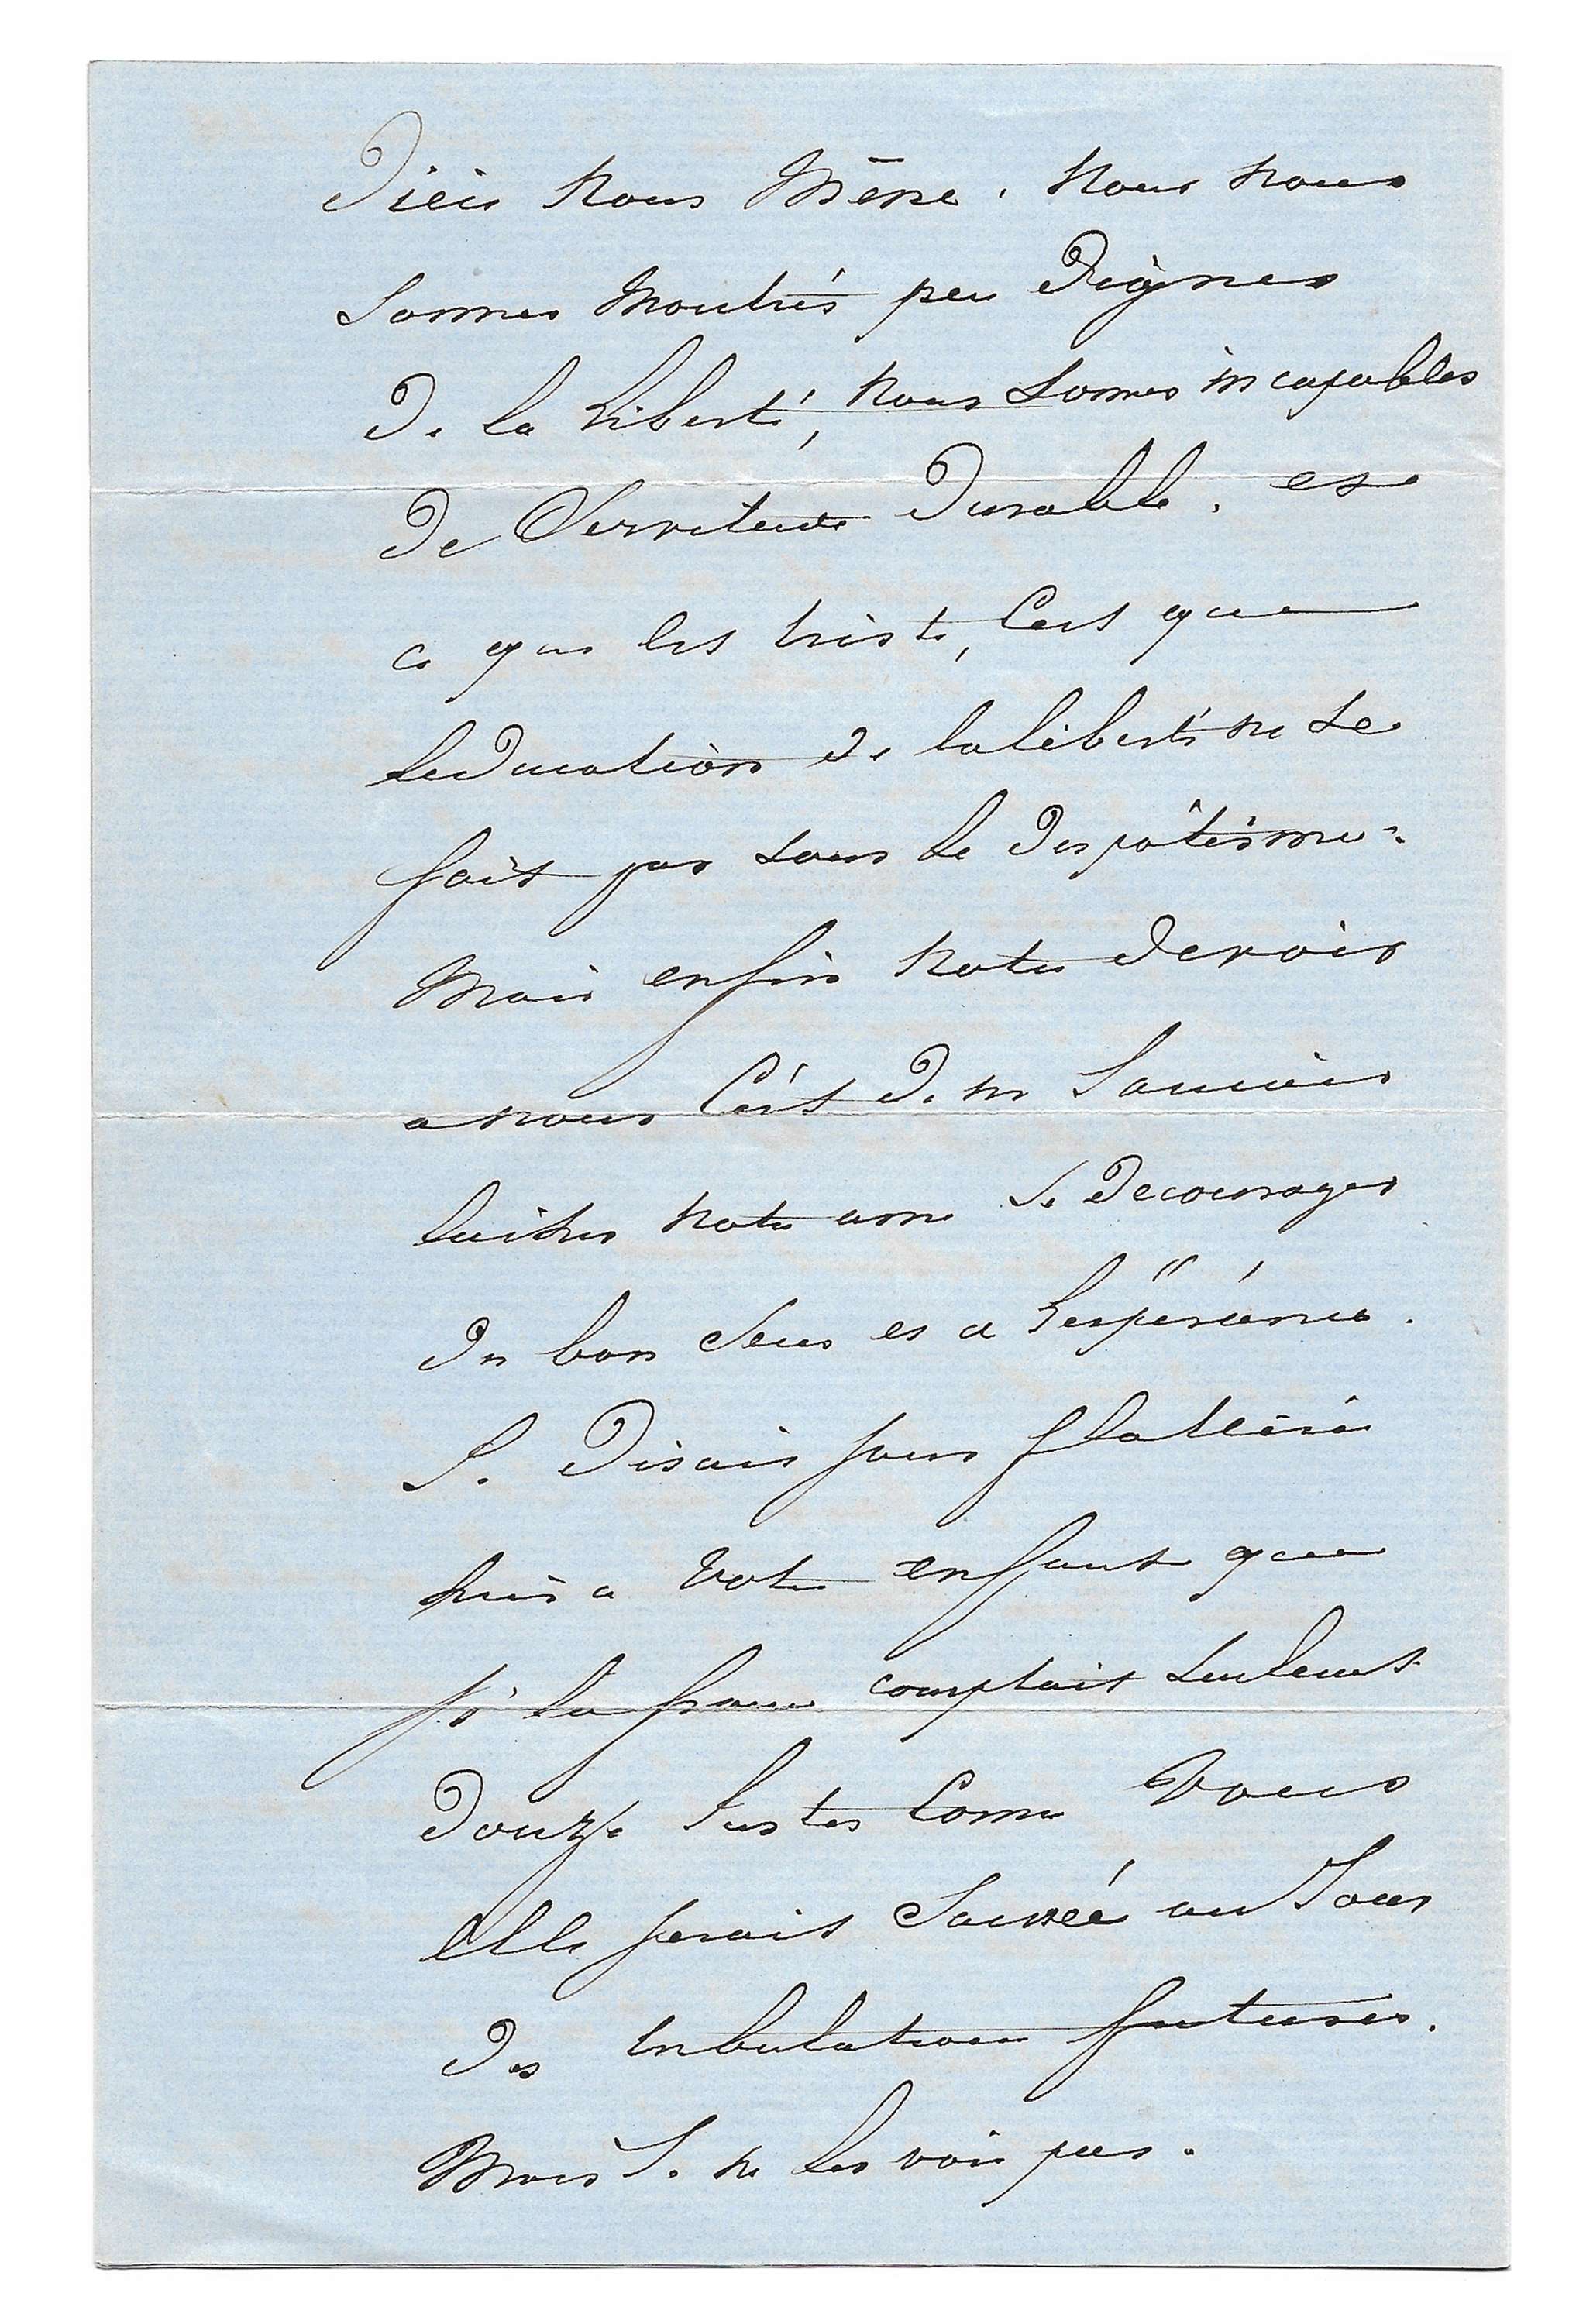 Dieu nous Mêne. Nous nous
sommes montrés peu Dignes
De la liberté, nous sommes incapables
De Servitude Durable. et
ce que les triste, Cest que
leducation de la liberté ne se
fait pas sous le Despôtisme.
Mais enfin notre devoir
a nous C'est De ne
laisser notre ame se Decourager
Du bon sens et a L'espérance.
Je Disais sans flatterie
hier a votre enfant que
si la france comptait seulement
Douze Justes Comme Vous
elle serait Sauvée au Jour
Des tribulations futures.
Mais Je ne les vois pas.